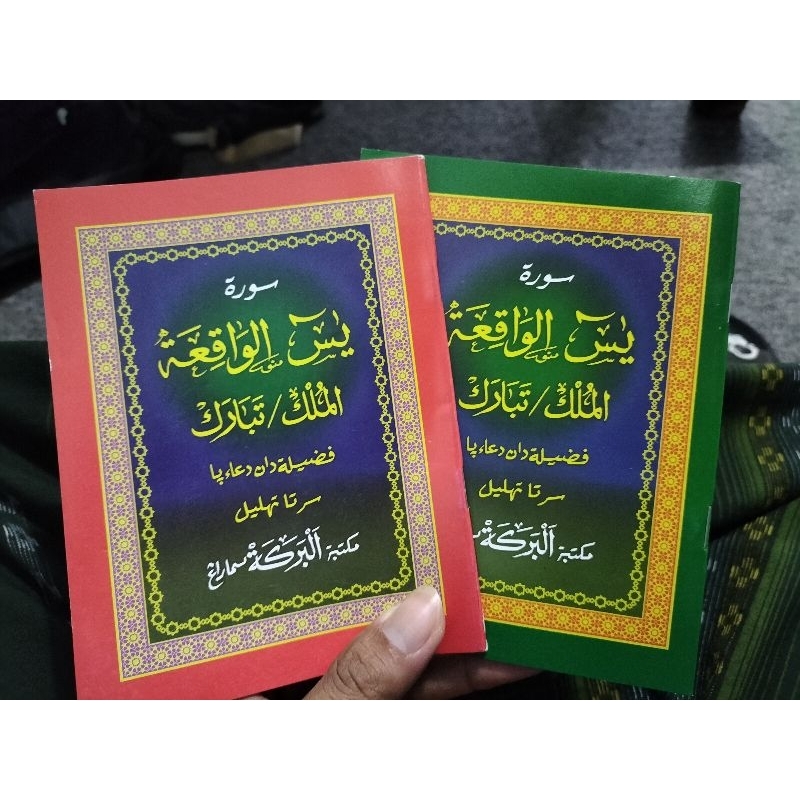 سورة
يٰسٓ الْوَاقِعَةْ
الْمُلْكْ / تَبَارَكْ
فضيلة دان دعاء پا
سرتا تهليل
مكتبة اَلْبَرَكَةْ سماراڠ
سورة
يٰسٓ الْوَاقِعَةْ
الْمُلْكْ / تَبَارَكْ
فضيلة دان دعاء پا
سرتا تهليل
مكتبة اَلْبَرَكَةْ